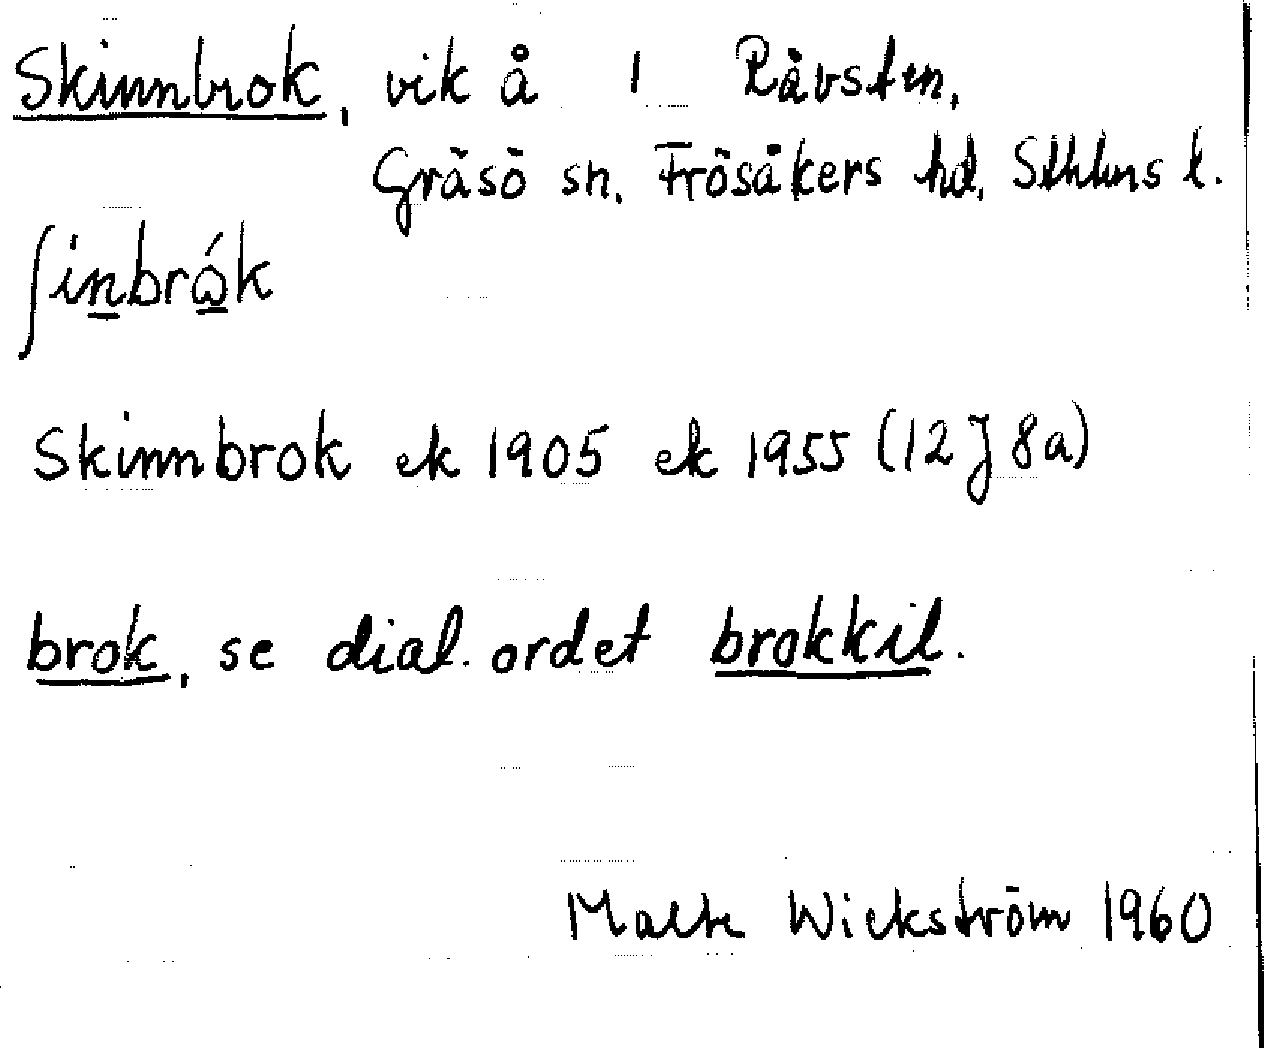 Skinnbrok, vik å 1 Råvsten,
Gräsö sn. Frösåkers hd. Sthlms l.
ʃinbrǻk
Skinnbrok ek 1905 ek 1955 (12 J 8a)
brok, se dial. ordet brokkil.
Malte Wickström 1960